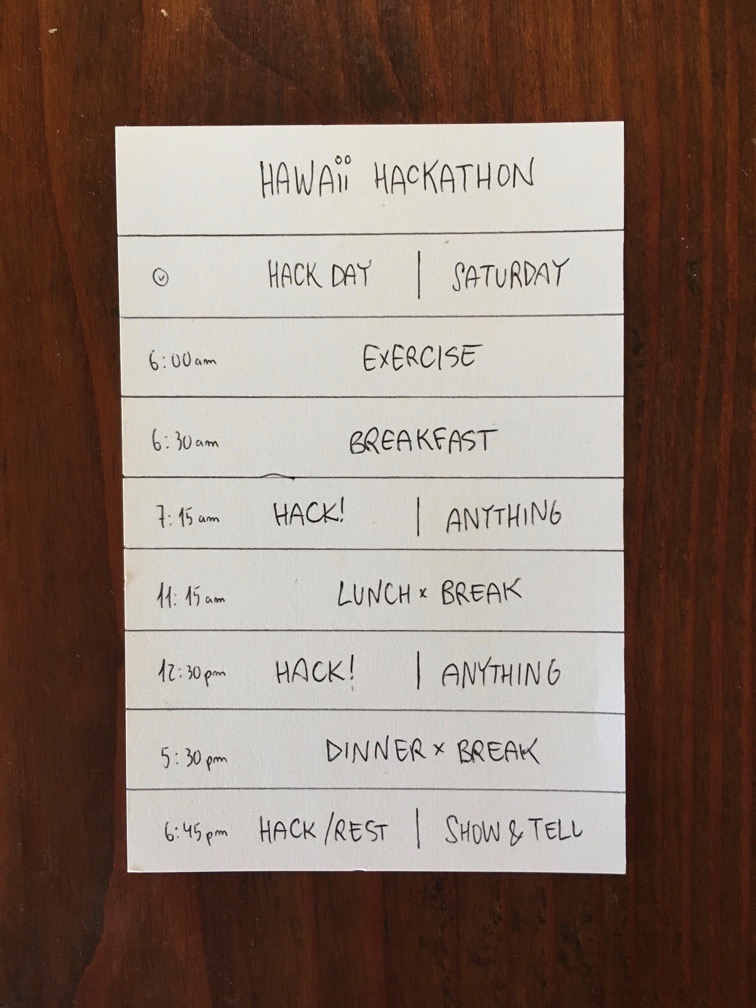 HAWAII HACKATHON
HACK DAY | SATURDAY
6:00am EXERCISE
6:30am BREAKFAST
7:15am HACK! | ANYTHING
11:15am LUNCH x BREAK
12:30pm HACK! | ANYTHING
5:30pm DINNER x BREAK
6:45pm HACK/REST | SHOW & TELL